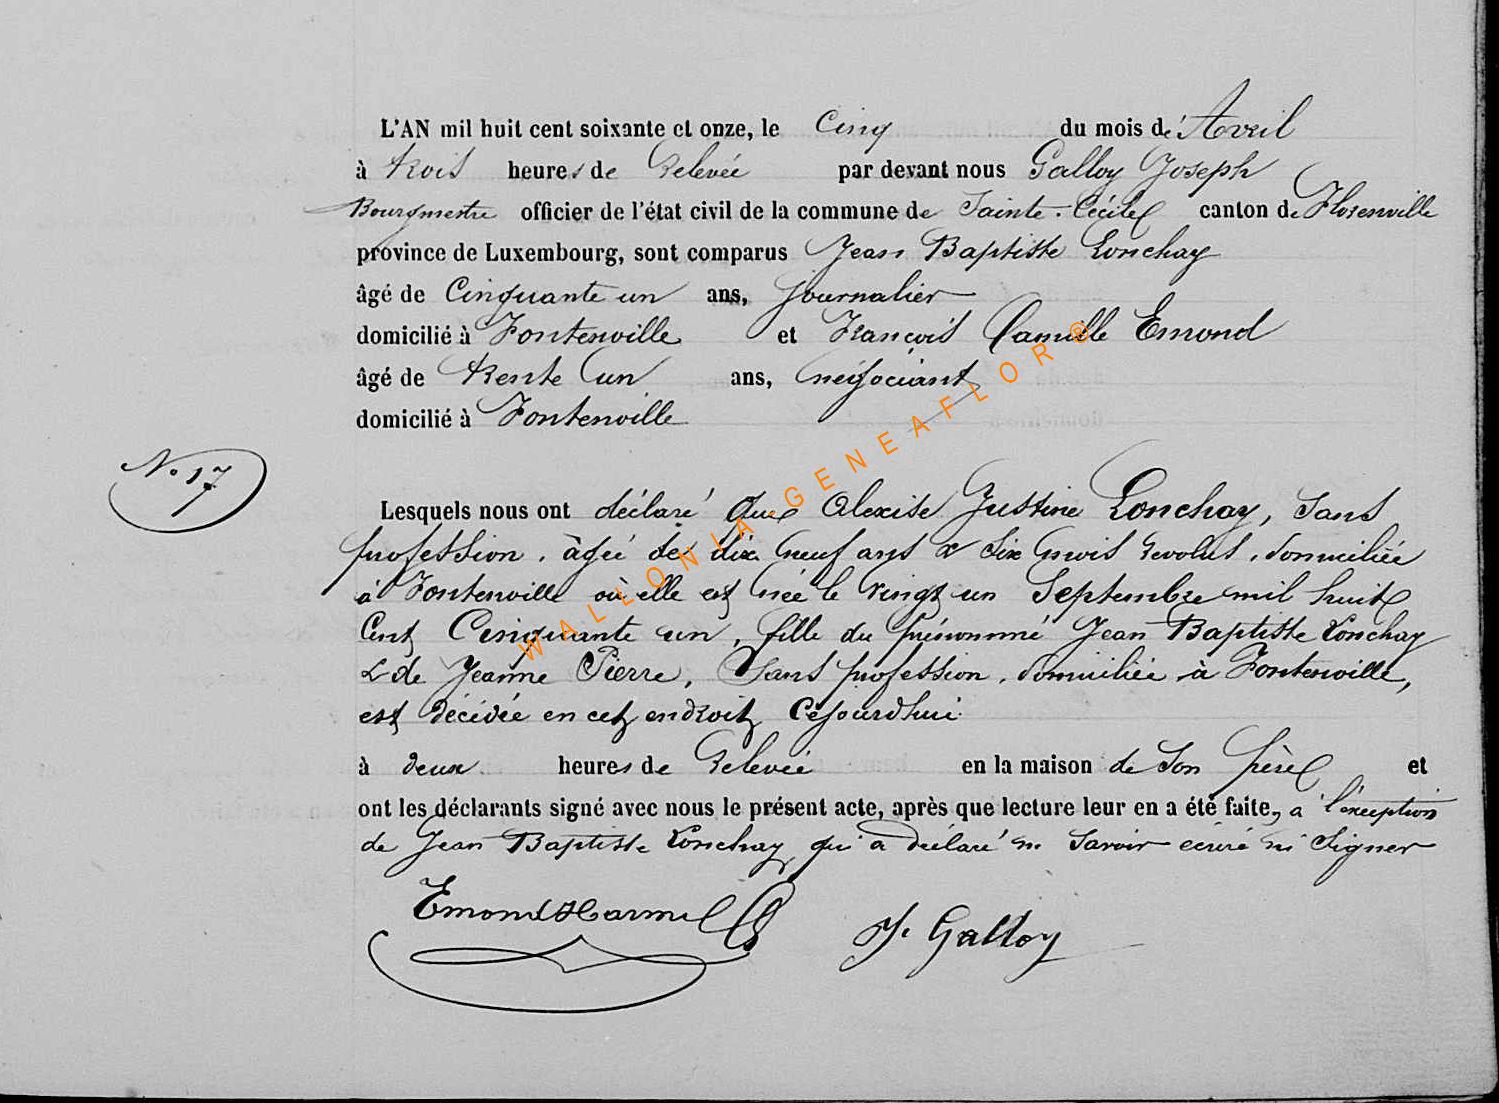 L'AN mil huit cent soixante et onze, le Cinq du mois de Avril
à trois heures de Relevée par devant nous Galloy Joseph
Bourgmestre officier de l'état civil de la commune de Sainte-Cécile canton de Florenville
province de Luxembourg, sont comparus Jean Baptiste Lonchay
âgé de Cinquante un ans, journalier
domicilié à Fontenoille et François Camille Emond
âgé de trente un ans, négociant
domicilié à Fontenoille
N° 17
Lesquels nous ont déclaré que Alexise Justine Lonchay, sans
profession, âgée de dix neuf ans & six mois revolus, domiciliée
à Fontenoille où elle est née le vingt un Septembre mil huit
Cent Cinquante un, fille du prénommé Jean Baptiste Lonchay
& de Jeanne Pierre, Sans profession, domiciliée à Fontenoille,
est décédée en cet endroit Cejourd'hui
à deux heures de Relevée en la maison de Son père et
ont les déclarants signé avec nous le présent acte, après que lecture leur en a été faite, a l'exception
de Jean Baptiste Lonchay qui a déclaré ne Savoir écrire ni Signer
Emond Harmel J. Galloy
WALLONIA-GENEAFLOR®